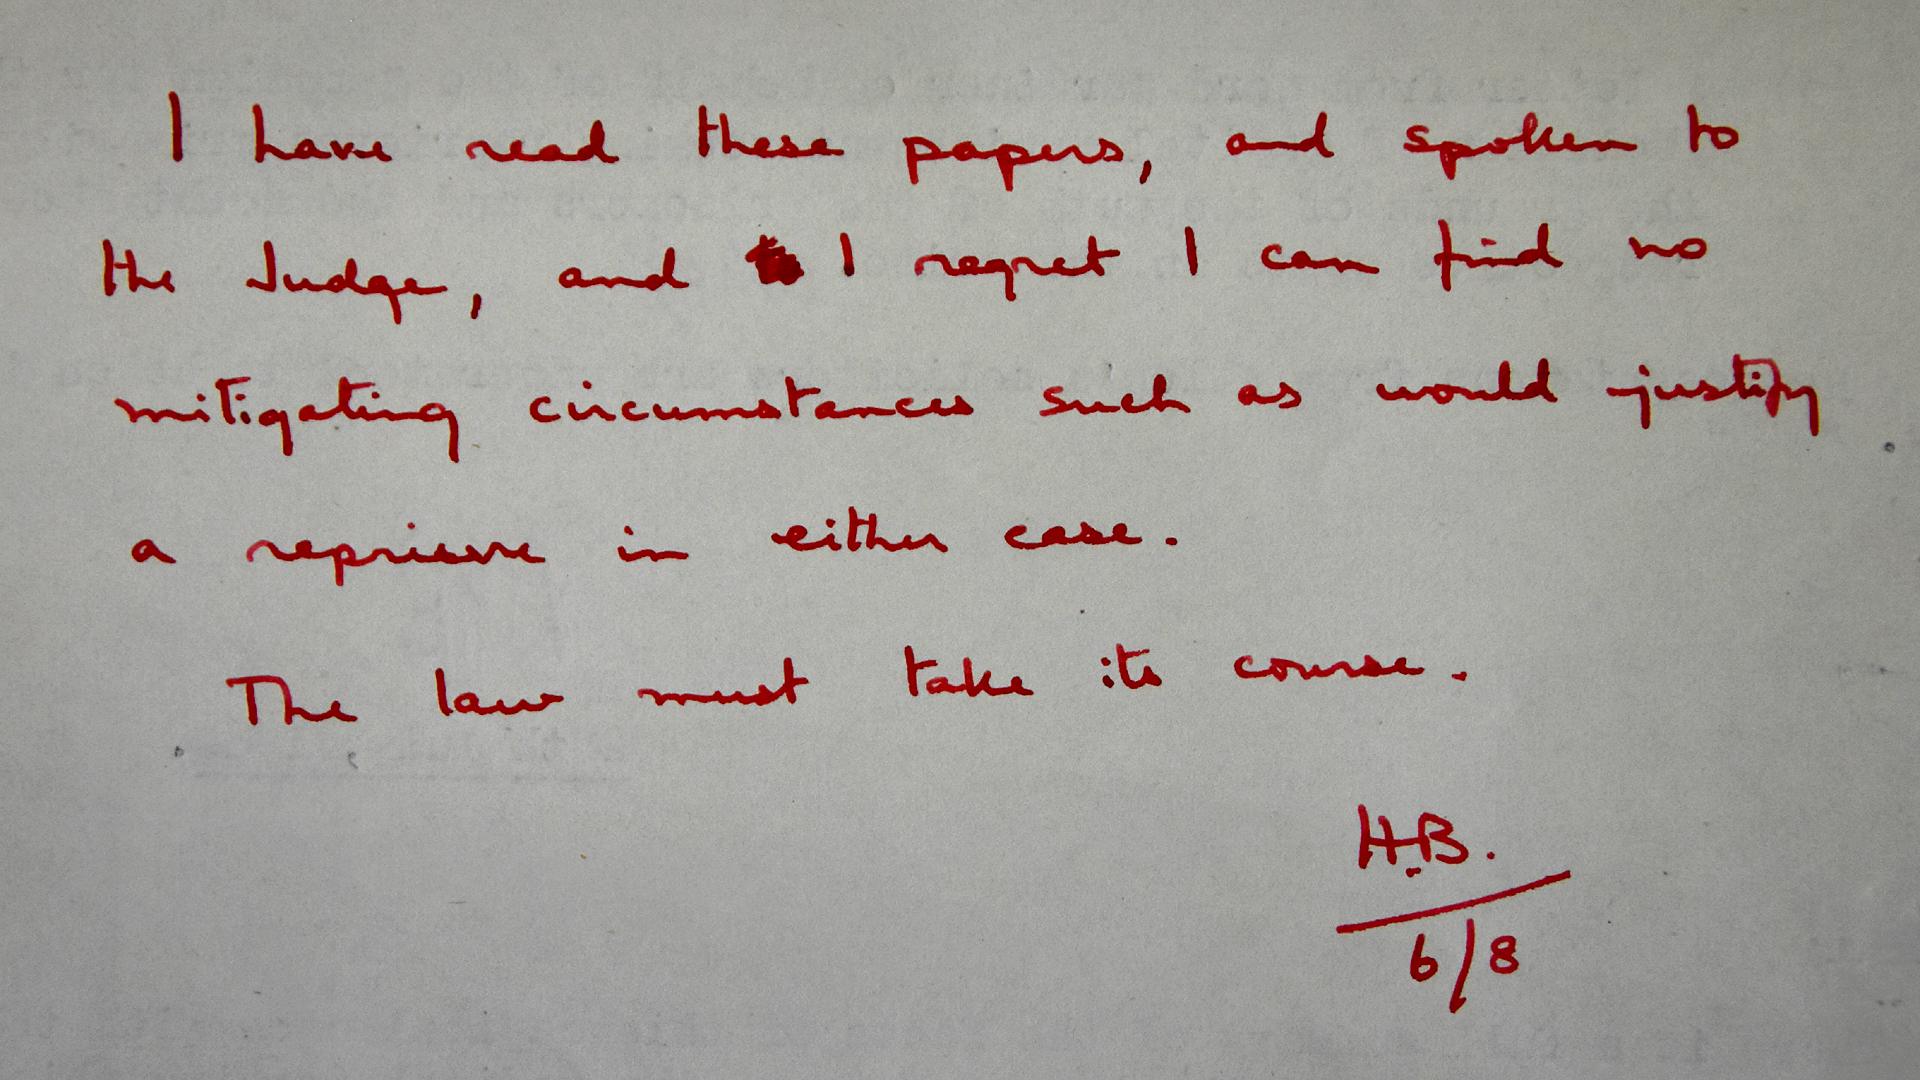 I have read these papers, and spoken to
the Judge, and I regret I can find no
mitigating circumstances such as would justify
a reprieve in either case.
The law must take its course.
H.B.
6/8